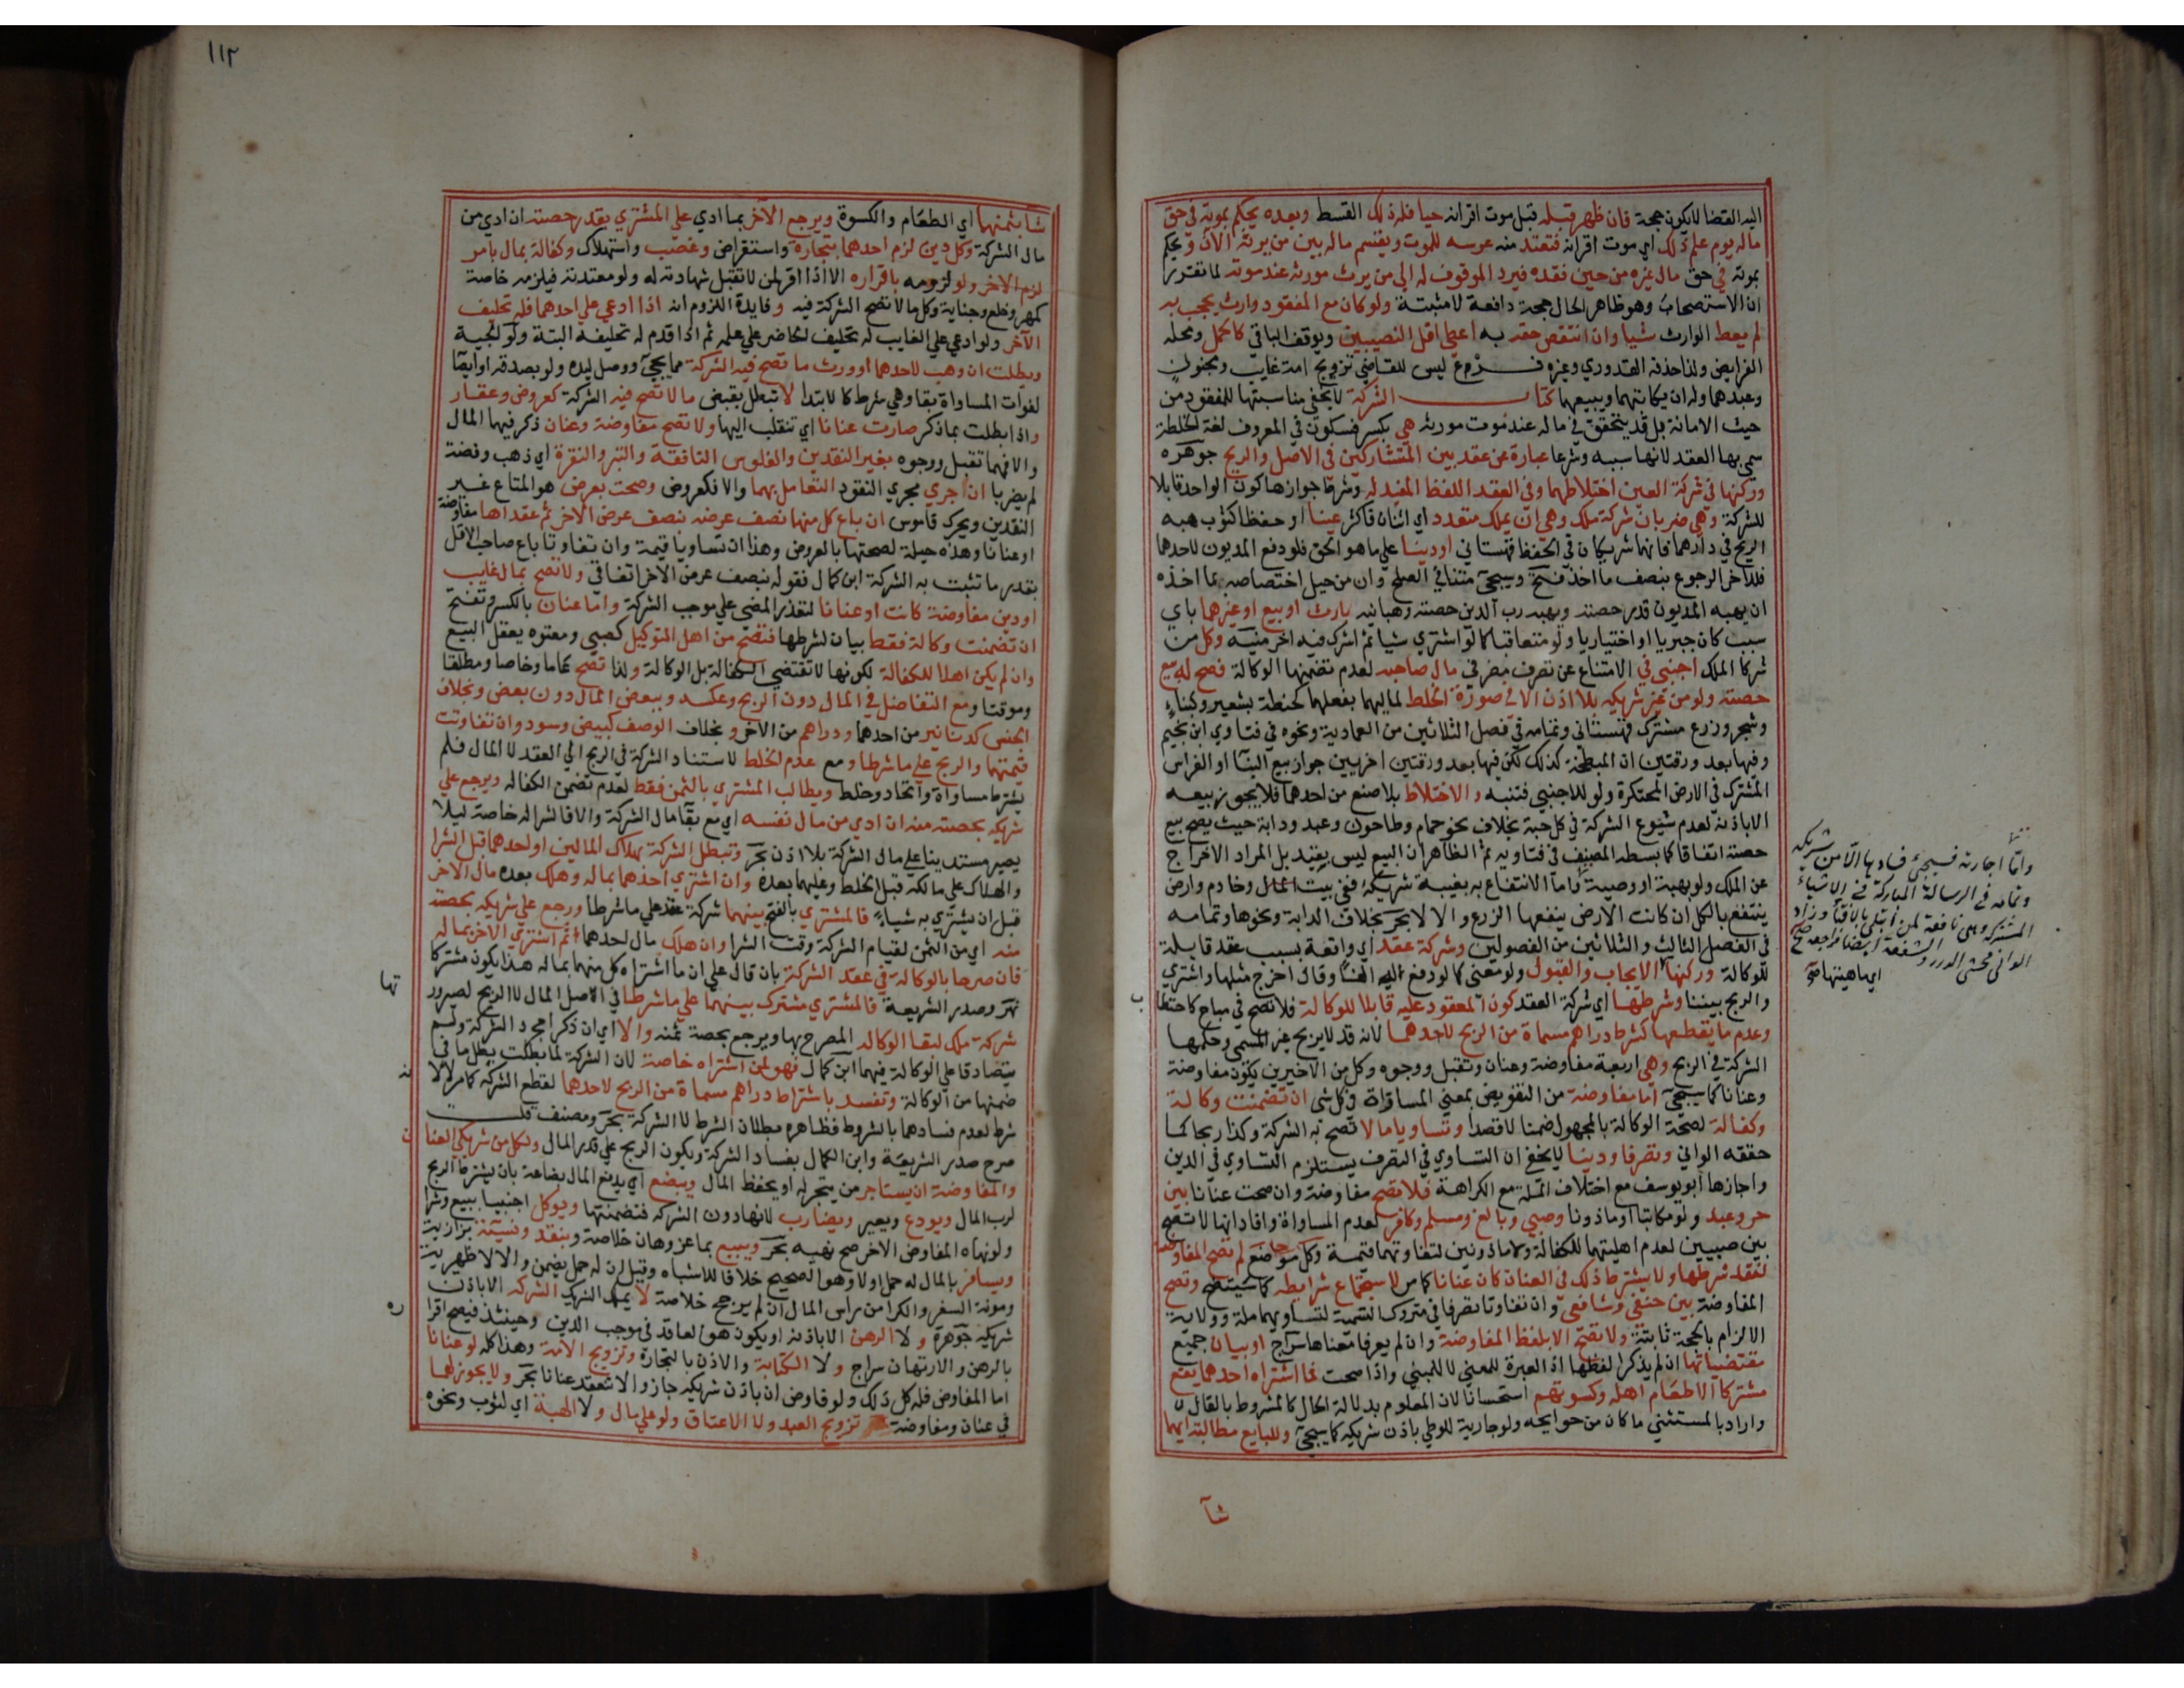 اليه القضا لا يكون حجة فان ظهر قبله قبل موت اقرانه حيا فله ذلك القسط وبعده يحكم بموته في حق
ماله يوم علم ذلك اي موت اقرانه فتعتد منه عرسه للموت ويقسم ماله بين من يرثه الآن ويحكم
بموته في حق مال غيره من حين فقده فيرد الموقوف له الى من يرث مورثه عند موته لما تقرر
ان الاستصحاب وهو ظاهر الحال حجة دافعة لا مثبتة ولو كان مع المفقود وارث يحجب به
لم يعط الوارث شيا وان انتقص حقه به اعطى اقل النصيبين ويوقف الباقي كالحمل ومحله
الفرايض ولذا حذفه القدوري وغيره فرع ليس للقاضي تزويج امة غايب ومجنون
وعبدهما وله ان يكاتبهما ويبيعهما كتاب الشركة لا يخفى مناسبتها للمفقود من
حيث الامانة بل قد يتحقق في ماله عند موت مورثه هي بكسر فسكون في المعروف لغة الخلطة
سمي بها العقد لانها سببه وشرعا عبارة عن عقد بين المتشاركين في الاصل والربح جوهره
وركنها في شركة العين اختلاطهما وفي العقد اللفظ المفيد له وشرط جوازها كون الواحد قابلا
للشركة وهي ضربان شركة ملك وهي ان يملك متعدد اي اثنان فاكثر عينا او حفظا كثوب هبه
الريح في دارهما فانهما شريكان في الحفظ قهستاني او دينا على ما هو الحق فلو دفع المديون لاحدهما
فللاخر الرجوع بنصف ما اخذ فتح وسيجي متنا في الصلح وان من حيل اختصاصه بما اخذه
ان يهبه المديون قدر حصته ويهبه رب الدين حصته وهبانيه بارث او بيع او غيرهما باي
سبب كان جبريا او اختياريا ولو متعاقبا كما لو اشترى شيا ثم اشرك فيه اخر منيه وكل من
شركا الملك اجنبي في الامتناع عن تصرف مضر في مال صاحبه لعدم تضمنها الوكالة فصح له بيع
حصته ولو من غير شريكه بلا اذن الا في صورة الخلط لماليهما بفعلهما كحنطة بشعير وكبناء
وشجر وزرع مشترك قهستاني وتمامه في فصل الثلاثين من العمادية ونحوه في فتاوي ابن نجيم
وفيها بعد ورقتين ان المبطخة كذلك لكن فيها بعد ورقتين اخريين جواز بيع البنا او الغراس
المشترك في الارض المحتكرة ولو للاجنبي فتنبه والاختلاط بلا صنع من احدهما فلا يجوز بيعه
الا باذنه لعدم شيوع الشركة في كل حبة بخلاف نحو حمام وطاحون وعبد ودابة حيث يصح بيع
حصته اتفاقا كما بسطه المصنف في فتاويه ثم الظاهر ان البيع ليس بقيد بل المراد الاخراج
عن الملك ولو بهبة او وصية واما الانتفاع به بغيبة شريكه ففي بيت المال وخادم وارض
ينتفع بالكل ان كانت الارض ينفعها الزرع والا لا بحر بخلاف الدابة ونحوها وتمامه
في الفصل الثالث والثلاثين من الفصولين وشركة عقد اي واقعة بسبب عقد قابلة
للوكالة وركنها الايجاب والقبول ولو معنى كما لو دفع اليه الفا وقال اخرج مثلها واشتري
والربح بيننا وشرطها اي شركة العقد كون المعقود عليه قابلا للوكالة فلا تصح في مباح كاحتطا
ب
وعدم ما يقطعها كشرط دراهم مسماة من الربح لاحدهما لانه قد لا يربح غير المسمى وحكمها
الشركة في الربح وهي اربعة مفاوضة وعنان وتقبل ووجوه وكل من الاخيرين يكون مفاوضة
وعنانا كما سيجي اما مفاوضة من التفويض بمعنى المساواة في كل شى ان تضمنت وكالة
وكفالة لصحة الوكالة بالمجهول ضمنا لا قصدا وتساويا مالا تصح به الشركة وكذا ربحا كما
حققه الواني وتصرفا ودينا لا يخفى ان التساوي في التصرف يستلزم التساوي في الدين
واجازها ابو يوسف مع اختلاف الملة مع الكراهة فلا تصح مفاوضة وان صحت عنانا بين
حر وعبد ولو مكاتبا او ماذونا وصبي وبالغ ومسلم وكافر لعدم المساواة وافاد انها لا تصح
بين صبيين لعدم اهليتهما للكفالة ولا ماذونين لتفاوتهما قيمة وكل موضع لم تصح المفاوضة
لفقد شرطها ولا يشترط ذلك في العنان كان عنانا كما مر لاستجماع شرايطه كما سيتضح وتصح
المفاوضة بين حنفي وشافعي وان تفاوتا تصرفا في متروك التسمية لتساويهما ملة وولاية
الالزام بالحجة ثابتة ولا تصح الا بلفظ المفاوضة وان لم يعرفا معناها سراج او بيان جميع
مقتضياتها ان لم يذكرا لفظها اذ العبرة للمعنى لا للمبنى واذا صحت فما اشتراه احدهما يقع
مشتركا الا طعام اهله وكسوتهم استحسانا لان المعلوم بدلالة الحال كالمشروط بالقال
واراد بالمستثنى ما كان من حوايجه ولو جارية للوطي باذن شريكه كما سيجي وللبايع مطالبة ايهما
شآ
واما اجارته فسيجئ فسادها الا من شريكه
وتمامه في الرسالة المباركة في الاشياء
المشتركة وهي نافعة لمن ابتلى بالافتا وزاد
الواني محشى الدرر والشفعة ايضا فراجعه صح
اي ماهيتها صح
١١٢
شا بثمنهما اي الطعام والكسوة ويرجع الآخر بما ادي على المشتري بقدر حصته ان ادي من
مال الشركة وكل دين لزم احدهما بتجارة واستقراض وغصب واستهلاك وكفالة بمال بامر
لزم الاخر ولو لزومه باقراره الا اذا اقر لمن لا تقبل شهادته له ولو معتدته فيلزمه خاصة
كمهر وخلع وجناية وكل ما لا تصح الشركة فيه وفايدة اللزوم انه اذا ادعي على احدهما فله تحليف
الآخر ولو ادعي على الغايب له تحليف الحاضر على علمه ثم اذا قدم له تحليفه البتة ولوالجية
وبطلت ان وهب لاحدهما او ورث ما تصح فيه الشركة مما يجي ووصل ليده ولو بصدقة او ايصا
لفوات المساواة بقا وهي شرط كالابتدا لا تبطل بقبض ما لا تصح فيه الشركة كعروض وعقار
واذا بطلت بما ذكر صارت عنانا اي تنقلب اليها ولا تصح مفاوضة وعنان ذكر فيهما المال
والا فهما تقبل ووجوه بغير النقدين والفلوس النافقة والتبر والنقرة اي ذهب وفضة
لم يضربا ان جري مجري النقود التعامل بهما والا فكعروض وصحت بعرض هو المتاع غير
النقدين ويحرك قاموس ان باع كل منهما نصف عرضه بنصف عرض الاخر ثم عقداها مفاوضة
او عنانا وهذه حيلة لصحتها بالعروض وهذا ان تساويا قيمة وان تفاوتا باع صاحب الاقل
بقدر ما تثبت به الشركة ابن كمال فقوله بنصف عرض الآخر اتفاقي ولا تصح بمال غايب
او دين مفاوضة كانت او عنانا لتعذر المضي على موجب الشركة واما عنان بالكسر وتفتح
ان تضمنت وكالة فقط بيان لشرطها فتصح من اهل التوكيل كصبي ومعتوه يعقل البيع
وان لم يكن اهلا للكفالة لكونها لا تقتضي الكفالة بل الوكالة ولذا تصح عاما وخاصا ومطلقا
وموقتا ومع التفاضل في المال دون الربح وعكسه وببعض المال دون بعض وبخلاف
الجنس كدنانير من احدهما ودراهم من الآخر وبخلاف الوصف كبيض وسود وان تفاوتت
قيمتهما والربح على ما شرطا ومع عدم الخلط لاستناد الشركة في الربح الى العقد لا المال فلم
يشترط مساواة واتحاد وخلط ويطالب المشتري بالثمن فقط لعدم تضمن الكفالة ويرجع على
شريكه بحصته منه ان ادي من مال نفسه اي مع بقا مال الشركة والا فالشرا له خاصة ليلا
يصير مستدينا على مال الشركة بلا اذن بحر وتبطل الشركة بهلاك المالين او احدهما قبل الشرا
والهلاك على مالكه قبل الخلط وعليهما بعده وان اشترى احدهما بماله وهلك بعده مال الاخر
قبل ان يشتري به شيا فالمشتري بالفتح بينهما شركة عقد على ما شرطا ورجع على شريكه بحصته
منه اي من الثمن لقيام الشركة وقت الشرا وان هلك مال احدهما ثم اشترى الآخر بماله
فان صرحا بالوكالة في عقد الشركة بان قال على ان ما اشتراه كل منهما بماله هذا يكون مشتركا
نهر وصدر الشريعة فالمشتري مشترك بينهما على ما شرطا في الاصل المال لا الربح لصيرور
تها
شركة ملك لبقا الوكالة المصرح بها ويرجع بحصة ثمنه والا اي ان ذكرا مجرد الشركة ولم
يتصادقا على الوكالة فيهما ابن كمال فهو لمن اشتراه خاصة لان الشركة لما بطلت بطل ما في
ضمنها من الوكالة وتفسد باشتراط دراهم مسماة من الربح لاحدهما لقطع الشركة كما مر لا لا
نه
شرط لعدم فسادهما بالشروط فظاهره بطلان الشرط لا الشركة بحر ومصنف قلت
صرح صدر الشريعة وابن الكمال بفساد الشركة ويكون الربح على قدر المال ولكل من شريكي العنا
ن
والمفاوضة ان يستاجر من يتجر له او يحفظ المال ويبضع اي يدفع المال بضاعة بان يشترط الربح
لرب المال ويودع ويعير ويضارب لانها دون الشركة فتضمنتها ويوكل اجنبيا ببيع وشرا
ولو نهاه المفاوض الاخر صح نهيه بحر ويبيع بما عز وهان خلاصة وبنقد ونسيئة بزازية
ويسافر بالمال له حمل اولا وهو الصحيح خلافا للاشباه وقيل ان له حمل يضمن والا لا ظهيرية
ومونة السفر والكرا من راس المال ان لم يربح خلاصة لا يملك الشريك الشركة الا باذن
شريكه جوهرة ولا الرهن الا باذنه او يكون هو العاقد في موجب الدين وحينئذ فيصح اقرا
ره
بالرهن والارتهان سراج ولا الكتابة والاذن بالتجارة وتزويج الامة وهذا كله لو عنانا
اما المفاوض فله كل ذلك ولو فاوض ان باذن شريكه جاز والا تنعقد عنانا بحر ولا يجوز لهما
في عنان ومفاوضة تزويج العبد ولا الاعتاق ولو على مال ولا الهبة اي لثوب ونحوه